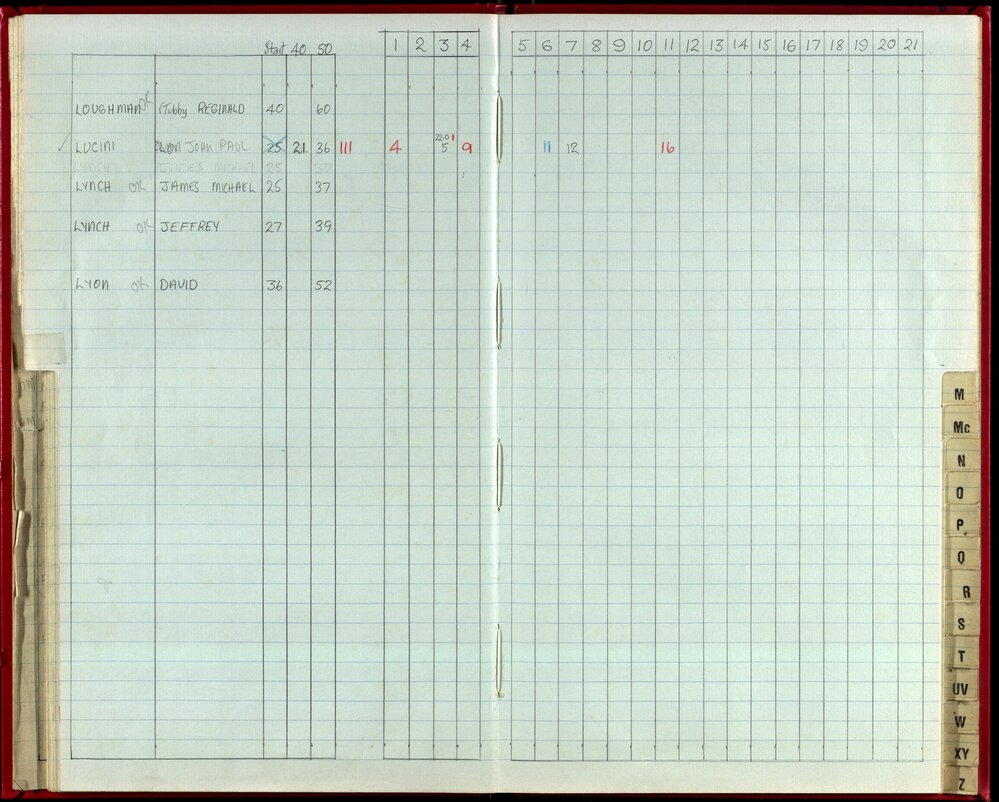 Start 40 50 1 2 3 4 5 6 7 8 9 10 11 12 13 14 15 16 17 18 19 20 21
LOUGHMAN OK (Tubby REGINALD 40 60
✓ LUCINI JOHN PAUL 25 21 36 111 4 5 9 11 12 16
LYNCH JAMES MICHAEL 25 37
LYNCH OK JAMES MICHAEL 25 37
LYNCH OK JEFFREY 27 39
LYON OK DAVID 36 52
M
Mc
N
O
P
Q
R
S
T
UV
W
XY
Z